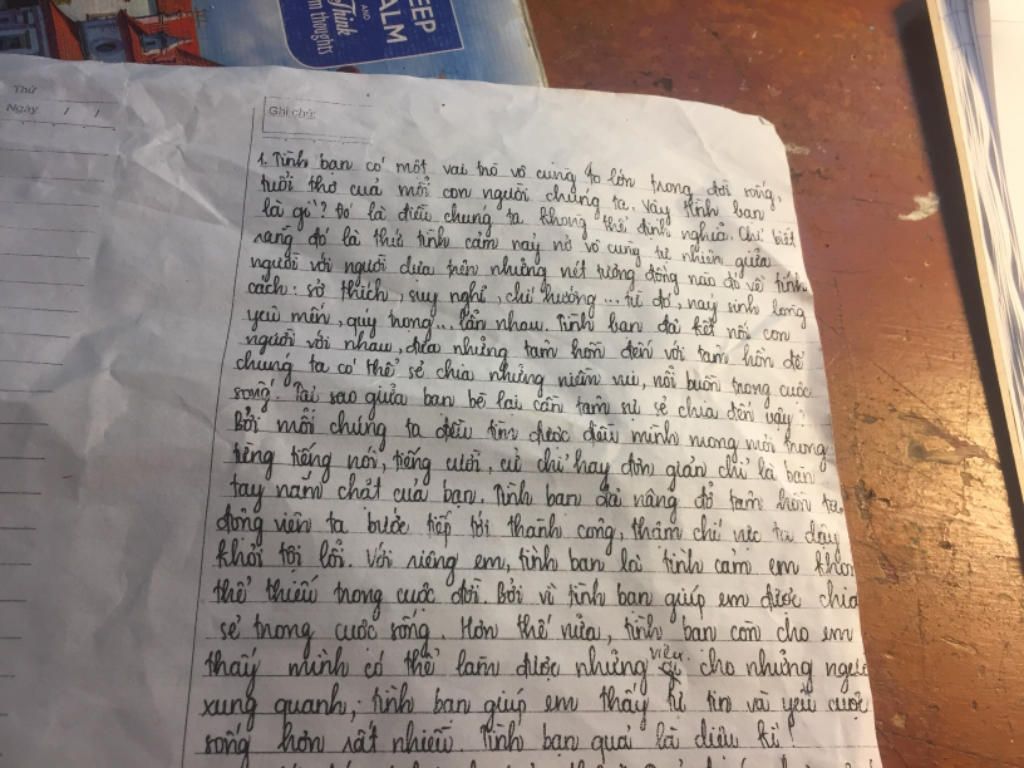 EEP
ALM
AND
Think
m thoughts
Thứ
Ngày / /
Ghi chú:
1. Tình bạn có một vai trò vô cùng to lớn trong đời sống,
tuổi thơ của mỗi con người chúng ta. Vậy tình bạn
là gì? Đó là điều chúng ta không thể định nghĩa. Chỉ biết
rằng đó là thứ tình cảm nảy nở vô cùng tự nhiên giữa
người với người dựa trên những nét tương đồng nào đó về tính
cách: sở thích, suy nghĩ, chí hướng... từ đó, nảy sinh lòng
yêu mến, quý trọng... lẫn nhau. Tình bạn đã kết nối con
người với nhau, đưa những tâm hồn đến với tâm hồn để
chúng ta có thể sẻ chia những niềm vui, nỗi buồn trong cuộc
sống. Tại sao giữa bạn bè lại cần tâm sự sẻ chia đến vậy?
Bởi mỗi chúng ta đều tìm được điều mình mong mỏi trong
từng tiếng nói, tiếng cười, cử chỉ hay đơn giản chỉ là bàn
tay nắm chặt của bạn. Tình bạn đã nâng đỡ tâm hồn ta,
động viên ta bước tiếp tới thành công, thậm chí vực ta dậy
khỏi tội lỗi. Với riêng em, tình bạn là tình cảm em khôn
thể thiếu trong cuộc đời. Bởi vì tình bạn giúp em được chia
sẻ trong cuộc sống. Hơn thế nữa, tình bạn còn cho em
thấy mình có thể làm được những việc gì cho những người
xung quanh, tình bạn giúp em thấy tự tin và yêu cuộc
sống hơn rất nhiều. Tình bạn quả là diệu kì!